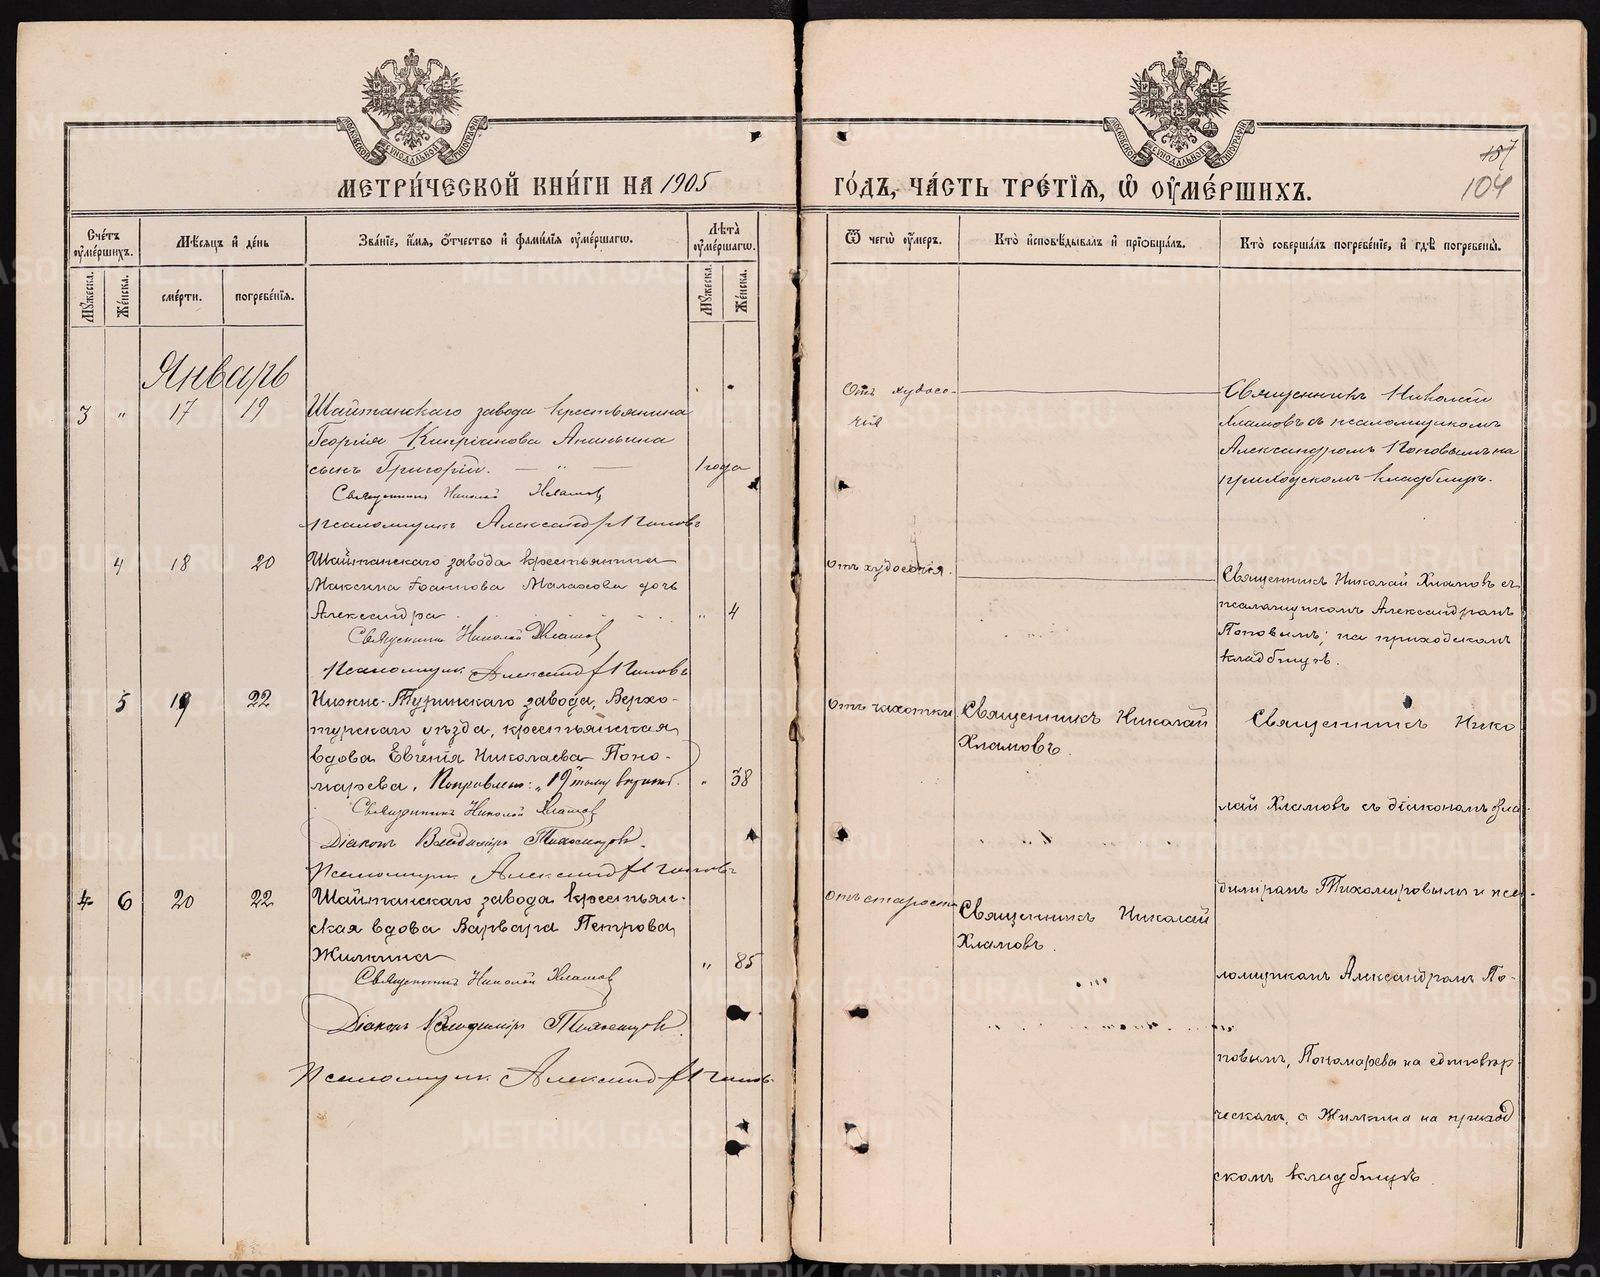 МОСКОВСКОЙ СѴНОДАЛЬНОЙ ТИПОГРАФІИ
МОСКОВСКОЙ СѴНОДАЛЬНОЙ ТИПОГРАФІИ
МЕТРИ́ЧЕСКОЙ КНИ́ГИ НА 1905
ГО́ДЪ, ЧА́СТЬ ТРЕ́ТІѦ, Ѡ ОУМЕ́РШИХЪ.
187
104
Сче́тъ оумершихъ.
Мꙋжеска.
Же́нска.
Мѣсяцъ и де́нь
сме́рти.
погребе́нїя.
Зва́нїе, и́мя, о́тчество и фами́лїя оуме́ршагѡ.
Лѣта̀ оуме́ршагѡ.
Мꙋжеска.
Же́нска.
Ѿ чегѡ̀ оу́меръ.
Кто̀ и́сповѣ́дывалъ и прїѡбща́лъ.
Кто̀ соверша́лъ погребе́нїе, и гдѣ̀ погребены̀.
Январь
3 " 17 19
Шайтанскаго завода крестьянина
Георгія Кипріанова Ананьина
сынъ Григорій. — " —
1 года
Священникъ Николай Хламов
Псаломщикъ Александр Поповъ
Отъ худосо-
чія
Священникъ Николай
Хламовъ съ псаломщикомъ
Александромъ Поповымъ на
приходскомъ кладбищѣ.
4 18 20
Шайтанскаго завода крестьянина
Максима Іоаннова Малахова дочь
Александра
" 4
Священникъ Николай Хламов
Псаломщик Александр Поповъ
отъ худосочія.
Священникъ Николай Хламовъ съ
псаломщикомъ Александромъ
Поповымъ; на приходскомъ
кладбищѣ.
5 19 22
Нижне-Туринскаго завода, Верхо-
турскаго уѣзда, крестьянская
вдова Евгенія Николаева Поно-
марева. Поправлено: „19" тому вѣрить.
" 38
Священникъ Николай Хламов
Діаконъ Владимір Тихомиров.
Псаломщик Александр Поповъ
отъ чахотки
Священникъ Николай
Хламовъ.
Священникъ Нико
лай Хламовъ съ діакономъ Вла-
диміромъ Тихомировымъ и пса-
ломщикомъ Александромъ По-
повымъ, Пономарева на единовѣр-
ческомъ, а Жилкина на приход
скомъ кладбищѣ.
4 6 20 22
Шайтанскаго завода крестьян-
ская вдова Варвара Петрова
Жилкина
" 85
Священникъ Николай Хламов
Діаконъ Владимір Тихомиров.
Псаломщик Александр Поповъ
отъ старости
Священникъ Николай
Хламовъ.
METRIKI.GASO-URAL.RU